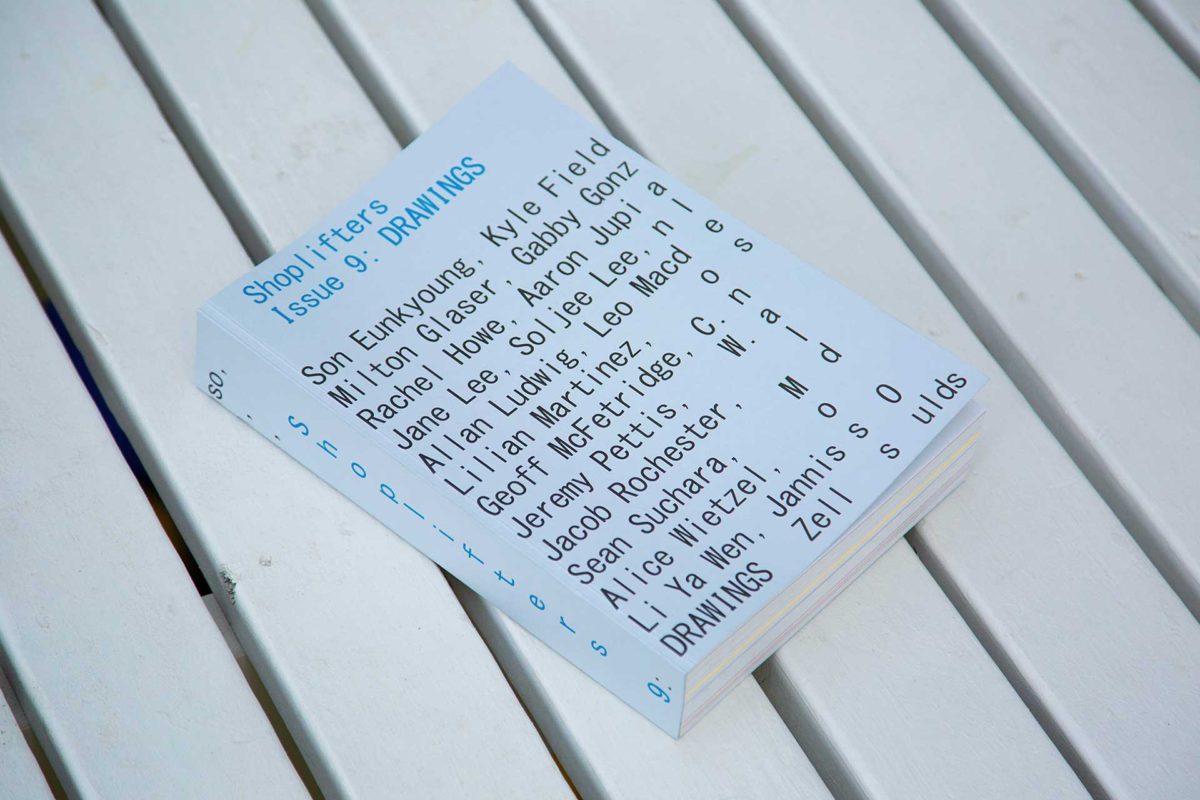 Shoplifters
Issue 9: DRAWINGS
Son Eunkyoung, Kyle Field
Milton Glaser, Gabby Gonz
Rachel Howe, Aaron Jupi a
Jane Lee, Soljee Lee, n l
Allan Ludwig, Leo Macd e
Lilian Martinez, o s
Geoff McFetridge, C. n
Jeremy Pettis, W. a
Jacob Rochester, l
Sean Suchara, M d
Alice Wietzel, o
Li Ya Wen, Jannis s O
DRAWINGS Zell s ulds
so, , , Shoplifters 9: